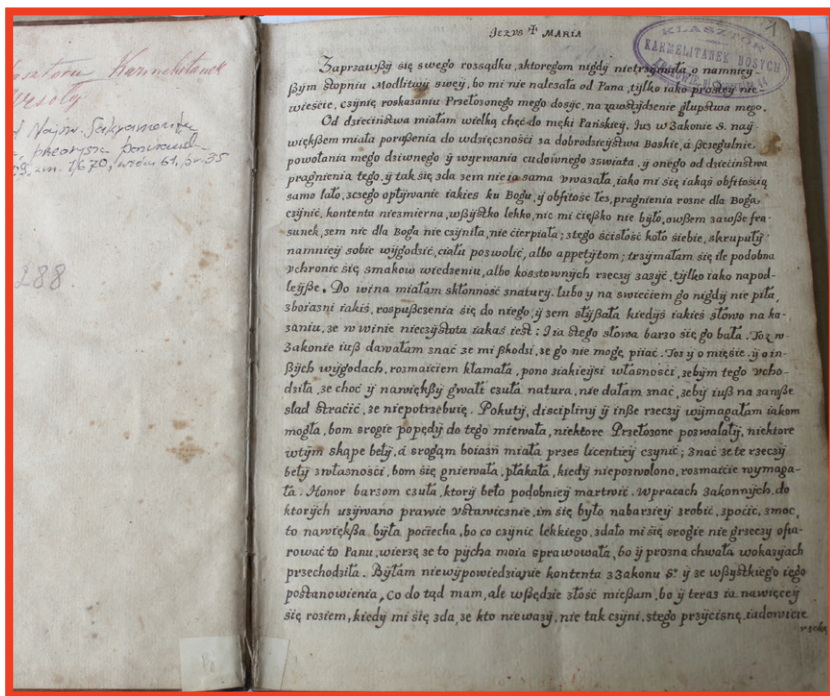 Klasztoru Karmelitanek
Wesoły
Najśw. Sakramentu
1670
288
Jezus Maria
KLASZTOR
KARMELITANEK BOSYCH
Zaprzawßy się swego rozsądku, aktoregom nigdy nietrzymała, o namniey
ßym stopniu Modlitwy swey, bo mi nie należała od Pana, tylko iako prostey nie
wieście, czynię roskazaniu Przełożonego mego dosyć, na zawstydzenie głupstwa mego.
Od dzieciństwa miałam wielką chęć do męki Pańskiey. Już w Zakonie S. nay
więkßem miała porußenia do wdzięczności za dobrodzieystwa Boskie, a ßczegulnie
powołania mego dziwnego y wyrwania cudownego zswiata, y onego od dzieciństwa
pragnienia tego, y tak się zda żem nie ia sama uważała, iako mi się iakąś obfitością
samo lało, zczego opływanie iakies ku Bogu, y obfitość łes, pragnienia rosne dla Boga
czynić, kontenta niezmierna, wßystko lekko, nic mi cięßko nie było, owßem zawße fra-
sunek, żem nic dla Boga nie czyniła, nie cierpiała; ztego ścisłość koło siebie, skrupuły
namniey sobie wygodzić, ciału pozwolić, albo appetytom; trzymałam się ile podobna
uchronić się smaków wiedzeniu, albo kosstownych rzeczy zażyć, tylko iako napod-
leyße. Do wina miałam skłonność znatury, lubo y na swiecie m go nigdy nie piła,
zboiazni iakiś, rospußczenia się do niego, y żem słyßała kiedyś iakieś słowo na ka-
zaniu, że w winie nieczystota iakaś iest: I ia ztego słowa barzo się go bała. Toż w
Zakonie iuß dawałam znać że mi ßkodzi, że go nie mogę piiać. Toż y o mięsie, y o in-
ßych wygodach, rozmaiciem kłamała, pono ziakieysi własności, żebym tego ucho-
dziła, że choć y nawięksßy gwałt czuła natura, nie dałam znać, żeby iuß na zawße
slad stracić, że niepotrzebuię. Pokuty, discipliny y inße rzeczy wymagałam iakom
mogła, bom srogie popędy do tego miewała, niektore Przełożone pozwalały, niektore
wtym skąpe były, a srogąm boiaźń miała przez licentiey czynić; Znać że te rzeczy
beły zwłasności, bom się gniewała, płakała, kiedy niepozwolono, rozmaicie wymaga-
ła. Honor barzom czuła, ktory beło podobniey martwić. Wpracach Zakonnych, do
ktorych używano prawie ustawicznie, im się było nabarziey zrobić, zpocić, zmoc,
to nawiękßa była pociecha, bo co czynić lekkiego, zdało mi się srogie nie grzeczy ofia-
rować to Panu, wierzę że to pycha moia sprawowała, bo y prozna chwała wokazyach
przechodziła. Byłam niewypowiedzianie kontenta z Zakonu S. y ze wßystkiego iego
postanowienia, co do tąd mam, ale wßędzie złość mießam, bo y teraz ia nawięcey
się roziem, kiedy mi się zda, że kto nieważy, nie tak czyni, ztego przycisnę, iadowicie
rzekę